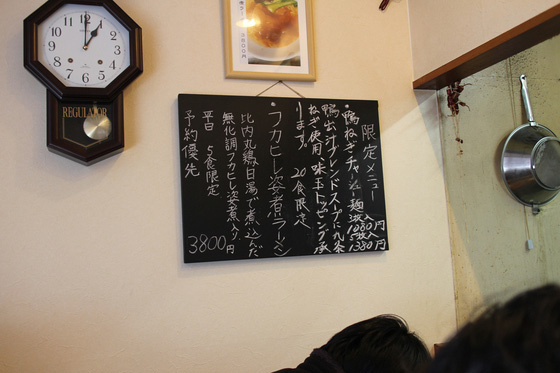 限定メニュー
・鴨ねぎチャーシュー麺 3枚入 1080円
5枚入 1380円
鴨出汁ブレンドスープに九条
ねぎ使用、味玉トッピング承
ります。 20食限定
フカヒレ姿煮ラーメン
比内丸鶏白湯で煮込んだ
無化調フカヒレ姿煮入り
平日 5食限定 3800円
予約優先
REGULATOR
12
1
2
3
4
5
6
7
8
9
10
11